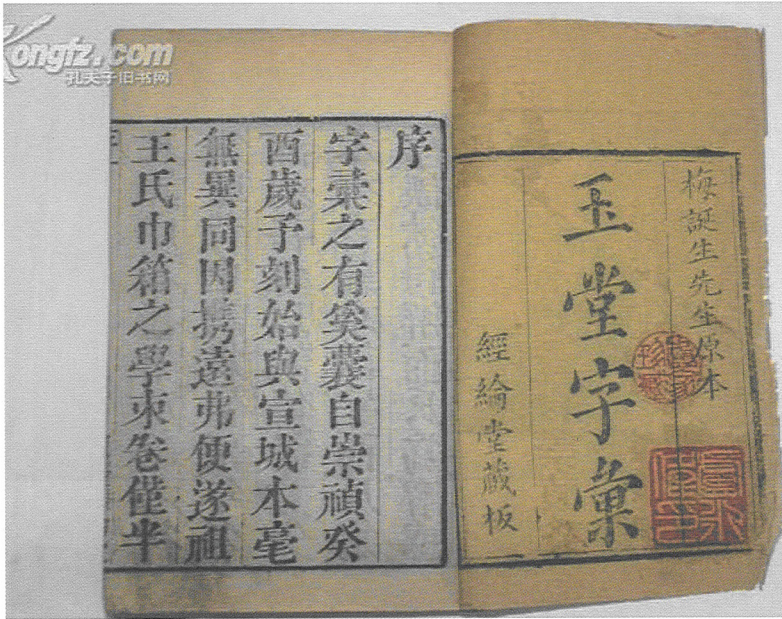 Kongfz.com
孔夫子旧书网
梅誕生先生原本
玉堂字彙
經綸堂藏板
序
字彙之有奚囊自崇禎癸
酉歲予刻始與宣城本毫
無異同因携遠弗便遂祖
王氏巾箱之學束卷僅半